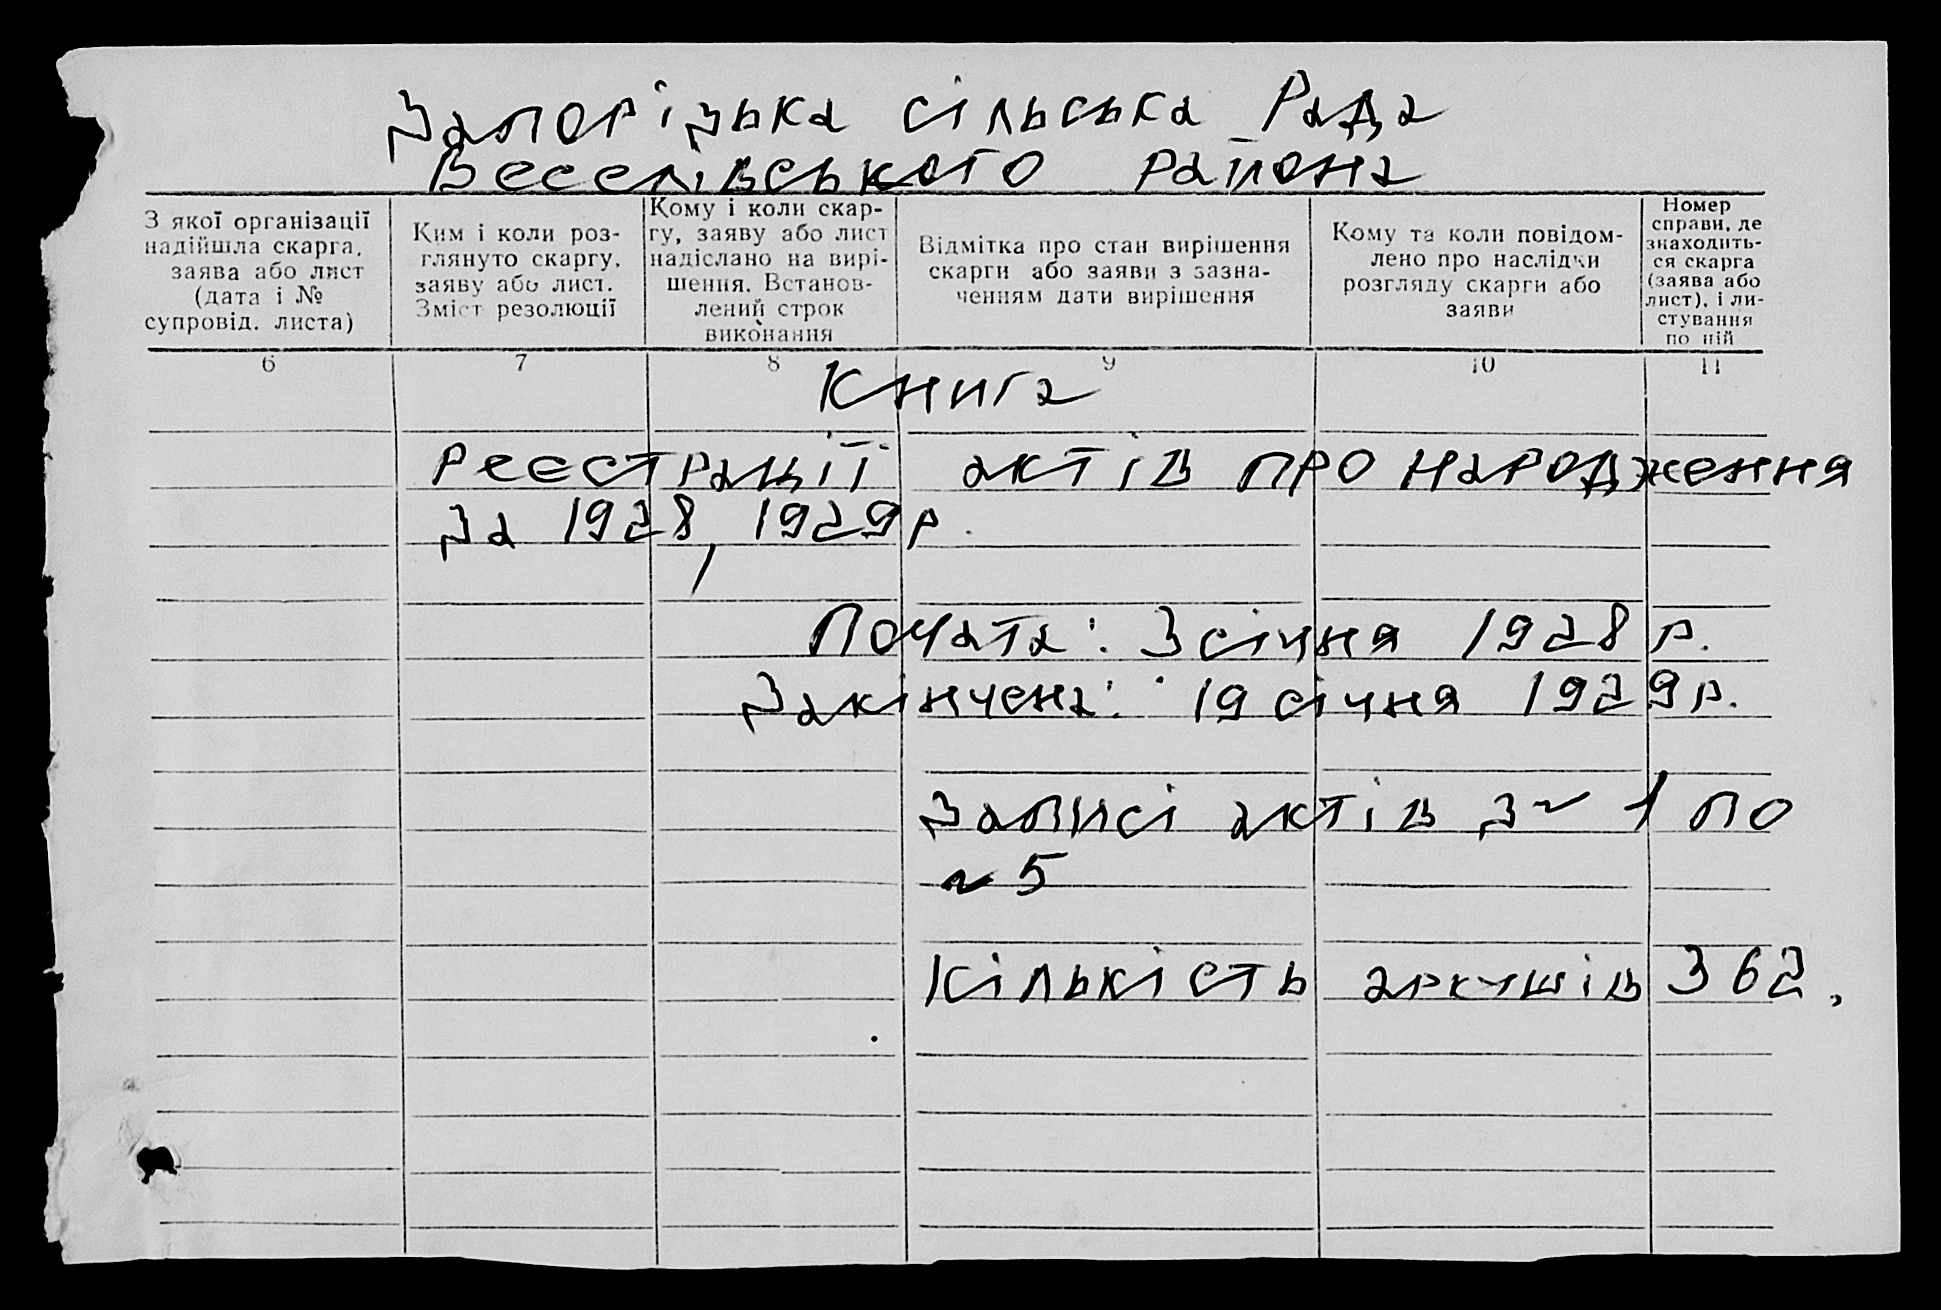 Запорізька сільська Рада
Веселівського района
З якої організації надійшла скарга, заява або лист (дата і № супровід. листа)
Ким і коли розглянуто скаргу, заяву або лист. Зміст резолюції
Кому і коли скаргу, заяву або лист надіслано на вирішення. Встановлений строк виконання
Відмітка про стан вирішення скарги або заяви з зазначенням дати вирішення
Кому та коли повідомлено про наслідки розгляду скарги або заяви
Номер справи, де знаходиться скарга (заява або лист), і листування по ній
6 7 8 9 10 11
Книга
реєстрації актів про народження
за 1928, 1929 р.
Почата: 3 січня 1928 р.
Закінчена: 19 січня 1929 р.
Записі актів з ~ 1 по
~ 5
Кількість аркушів 362.